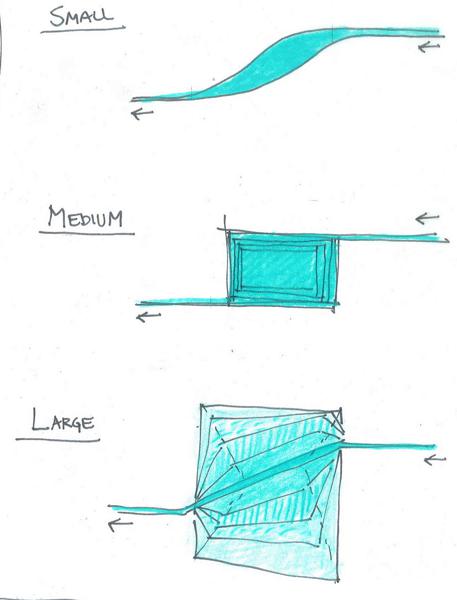 SMALL
MEDIUM
LARGE